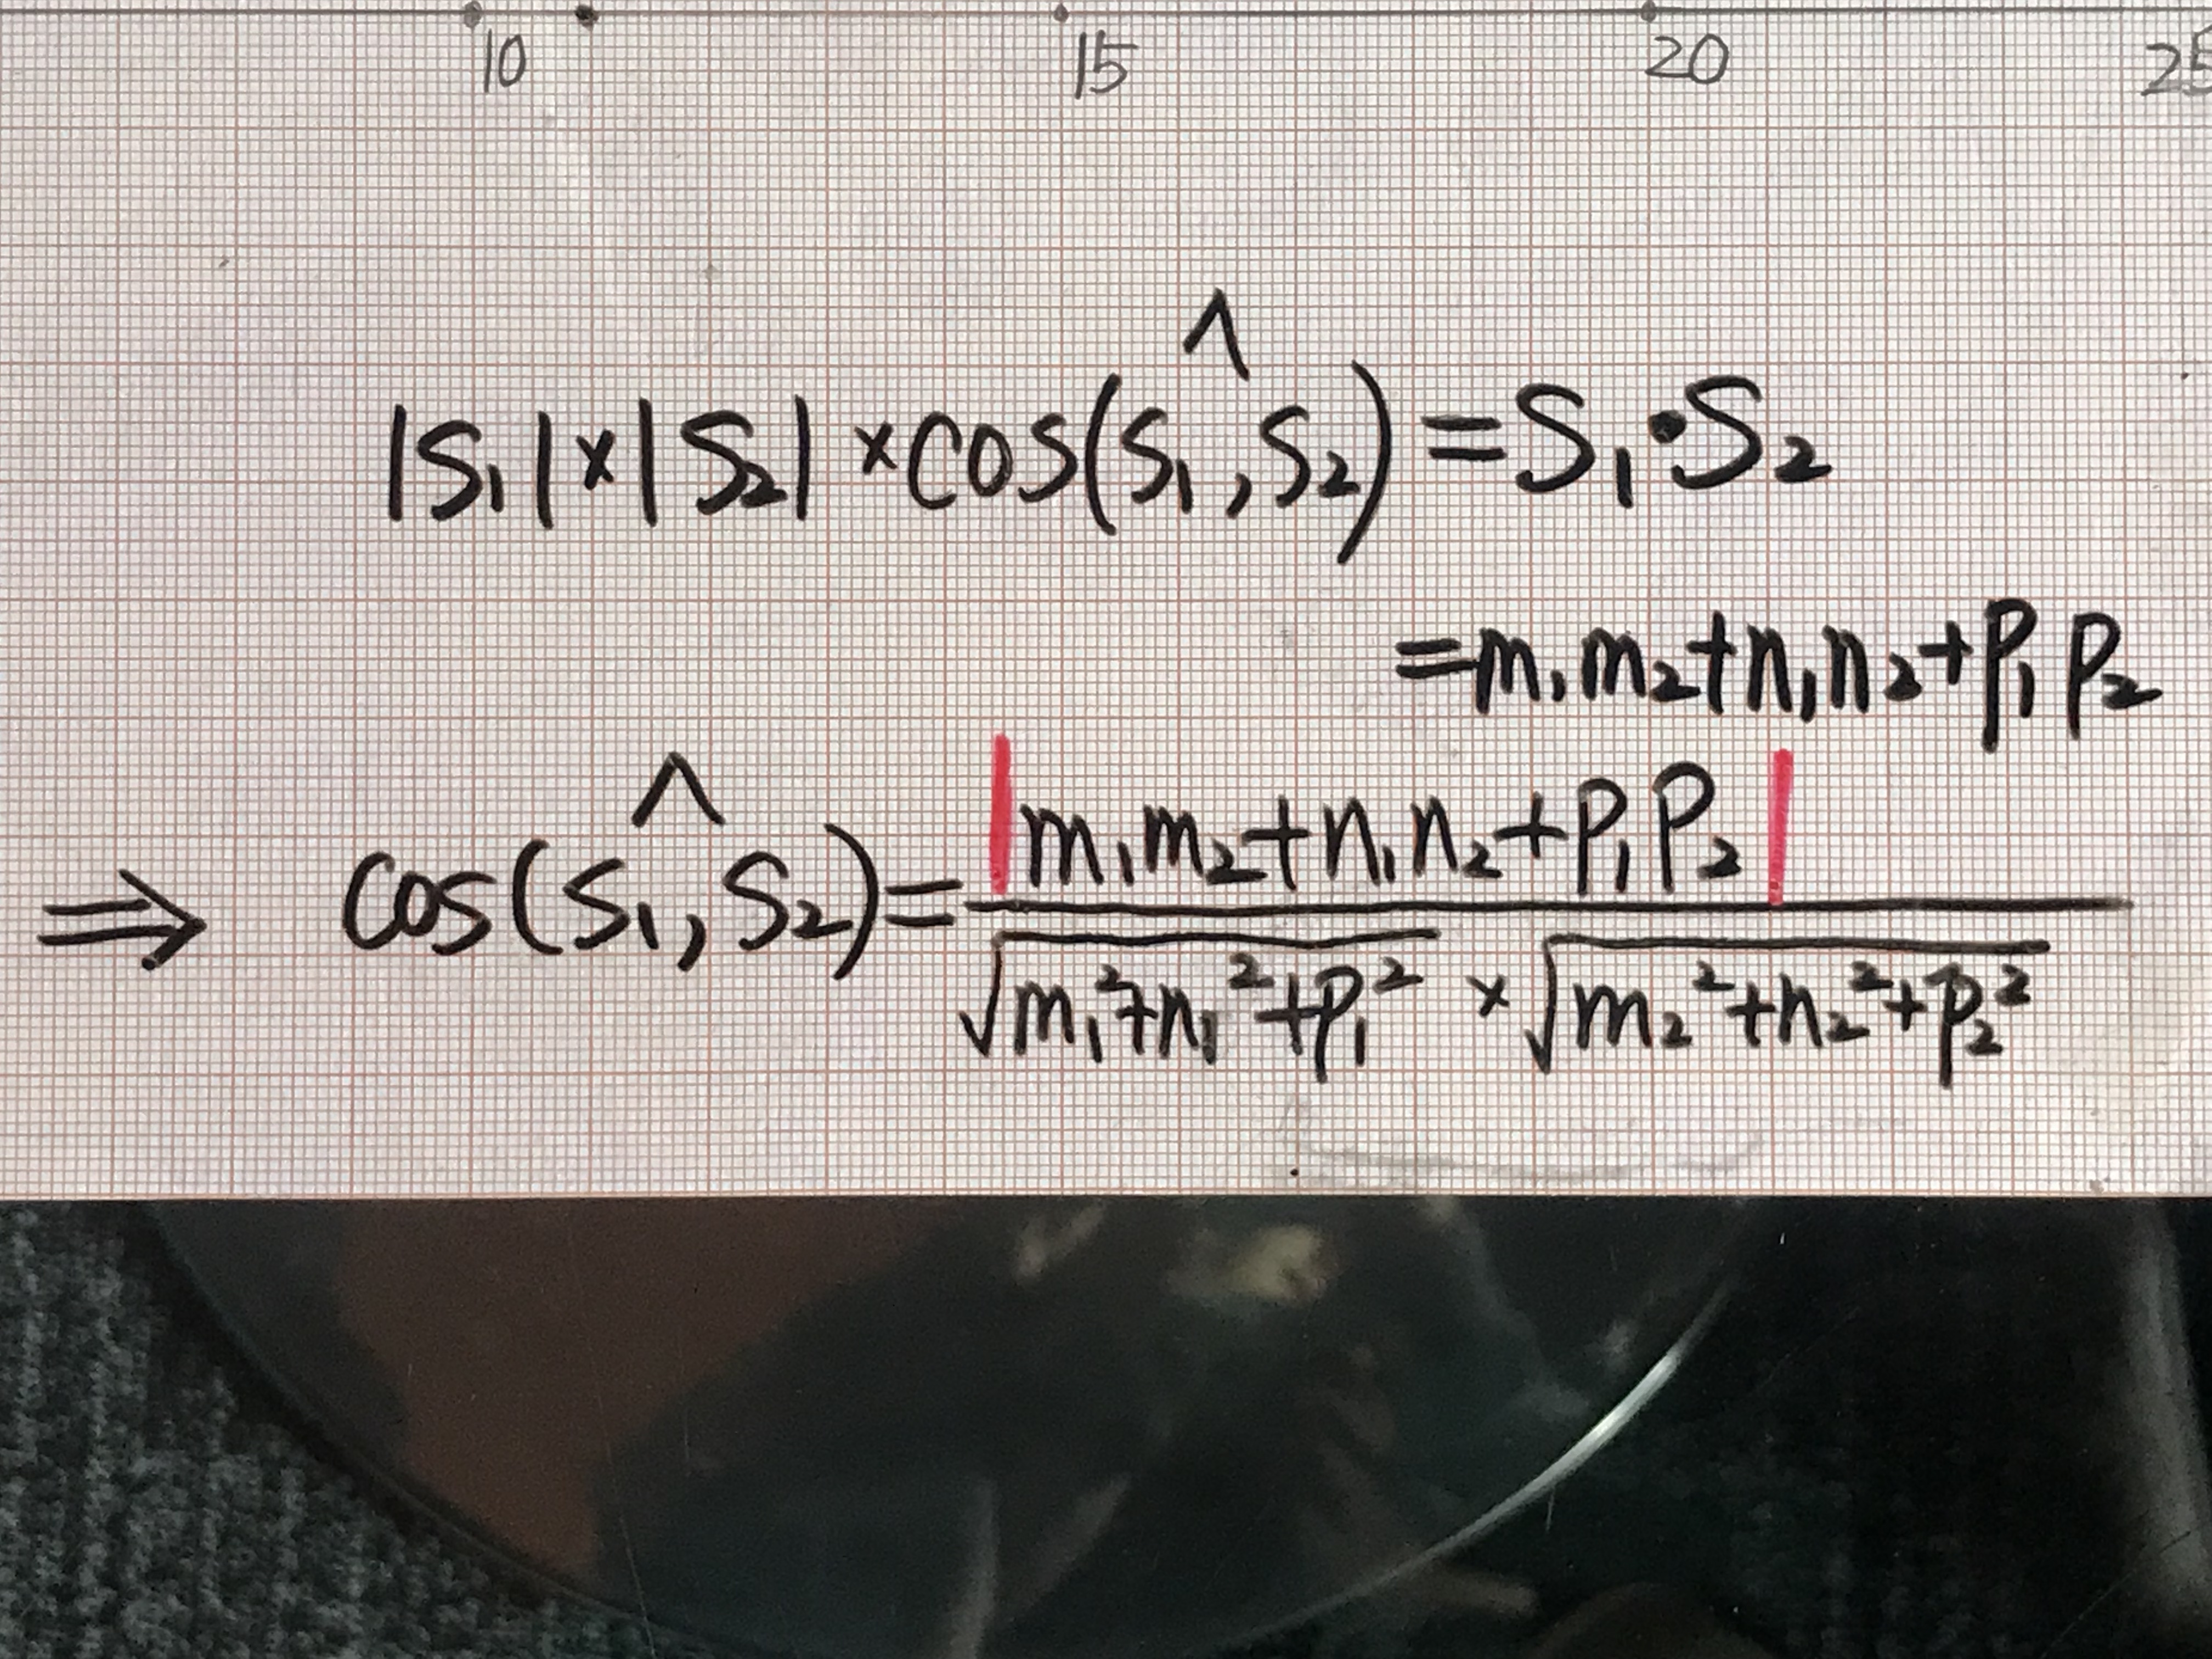 10 15 20 25
|S₁|×|S₂|×cos(S₁^,S₂)=S₁·S₂
=m₁m₂+n₁n₂+p₁p₂
⇒ cos(S₁^,S₂)=|m₁m₂+n₁n₂+p₁p₂|/(√(m₁²+n₁²+p₁²)×√(m₂²+n₂²+p₂²))